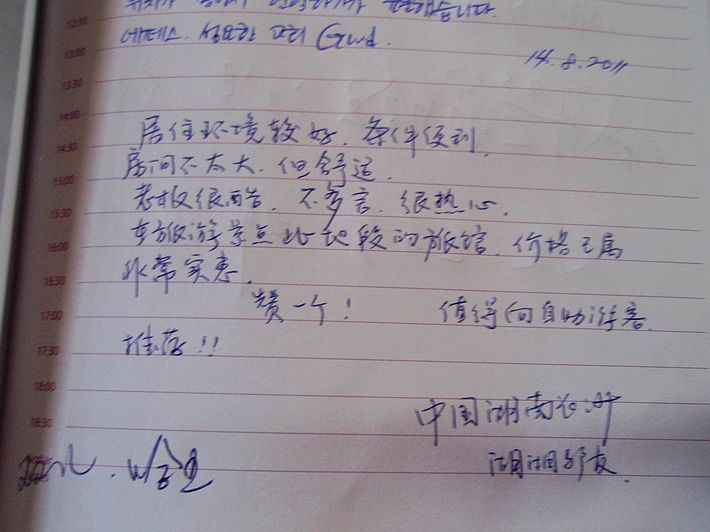 12:30
13:00 Gwd.
14.8.2011
13:30
14:00
居住环境较好，条件便利。
14:30
房间不太大，但舒适。
15:00
老板很酷，不多言，很热心。
15:30
旅游景点此地段的旅馆，价格已属
16:00
非常实惠。
16:30
赞一个！ 值得向自助游客
17:00
推荐！！
17:30
18:00
中国湖南长沙
18:30
湖湘驴友